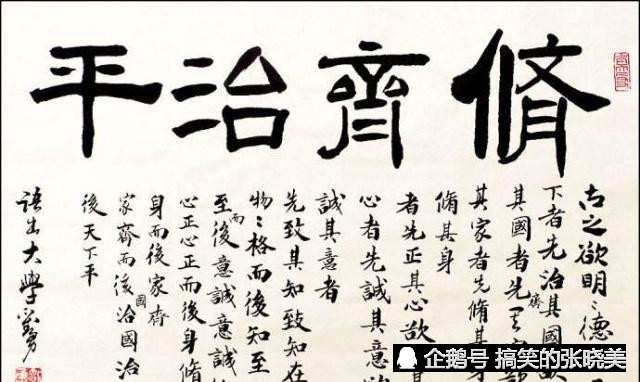 脩齊治平
古之欲明〻德
下者先治其國
其國者先齊其
其家者先脩其
脩其身
者先正其心欲
心者先誠其意
誠其意者
先致其知致知在
物〻格而後知至
至而後意誠意誠
心正心正而後身脩
身而後家齊
家齊而後國治國治
後天下平
語出大學
企鹅号 搞笑的张晓美